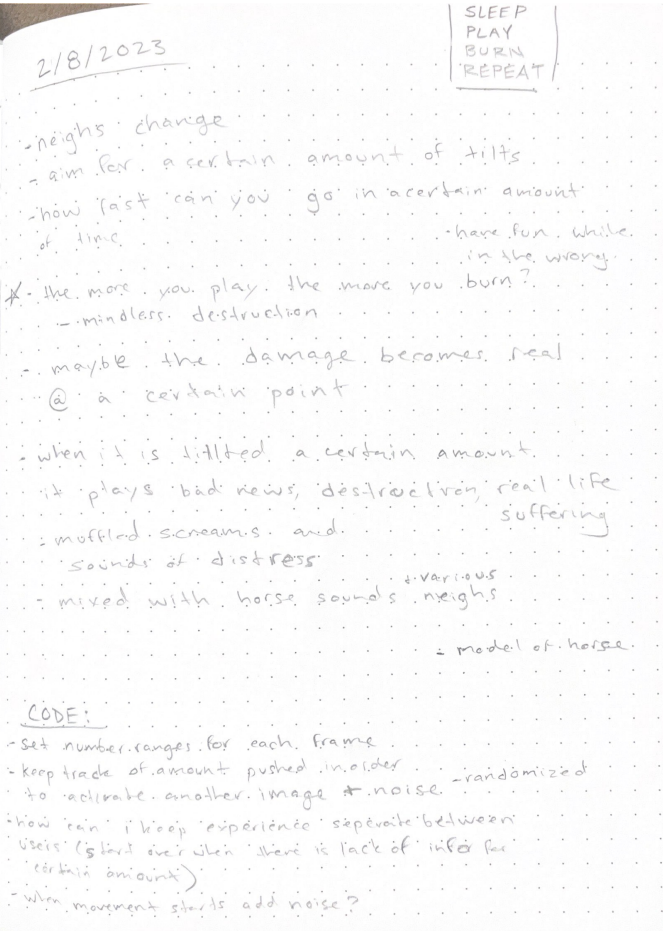 2/8/2023
SLEEP
PLAY
BURN
REPEAT
- neighs change
- aim for a certain amount of tilts
- how fast can you go in a certain amount
of time
- have fun while
in the wrong
☆ - the more you play the more you burn?
- mindless destruction
- maybe the damage becomes real
@ a certain point
- when it is tillted a certain amount
it plays bad news, destruction, real life
suffering
- muffled screams and
sounds of distress
+ various
- mixed with horse sounds neighs
- model of horse
CODE:
- set number ranges for each frame
- keep track of amount pushed in order
to activate another image + noise
- randomized
- how can i keep experience seperate between
users (start over when there is lack of info for
certain amount)
- when movement starts add noise?